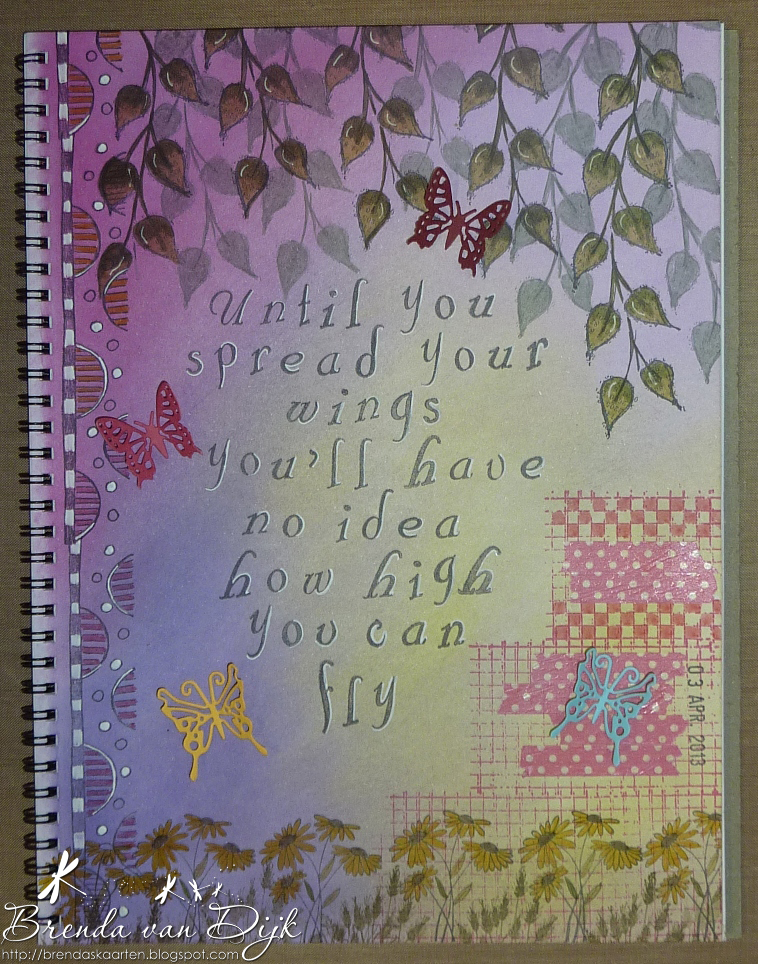 Until you
spread your
wings
you'll have
no idea
how high
you can
fly
03 APR. 2013
Brenda van Dijk
http://brendaskaarten.blogspot.com